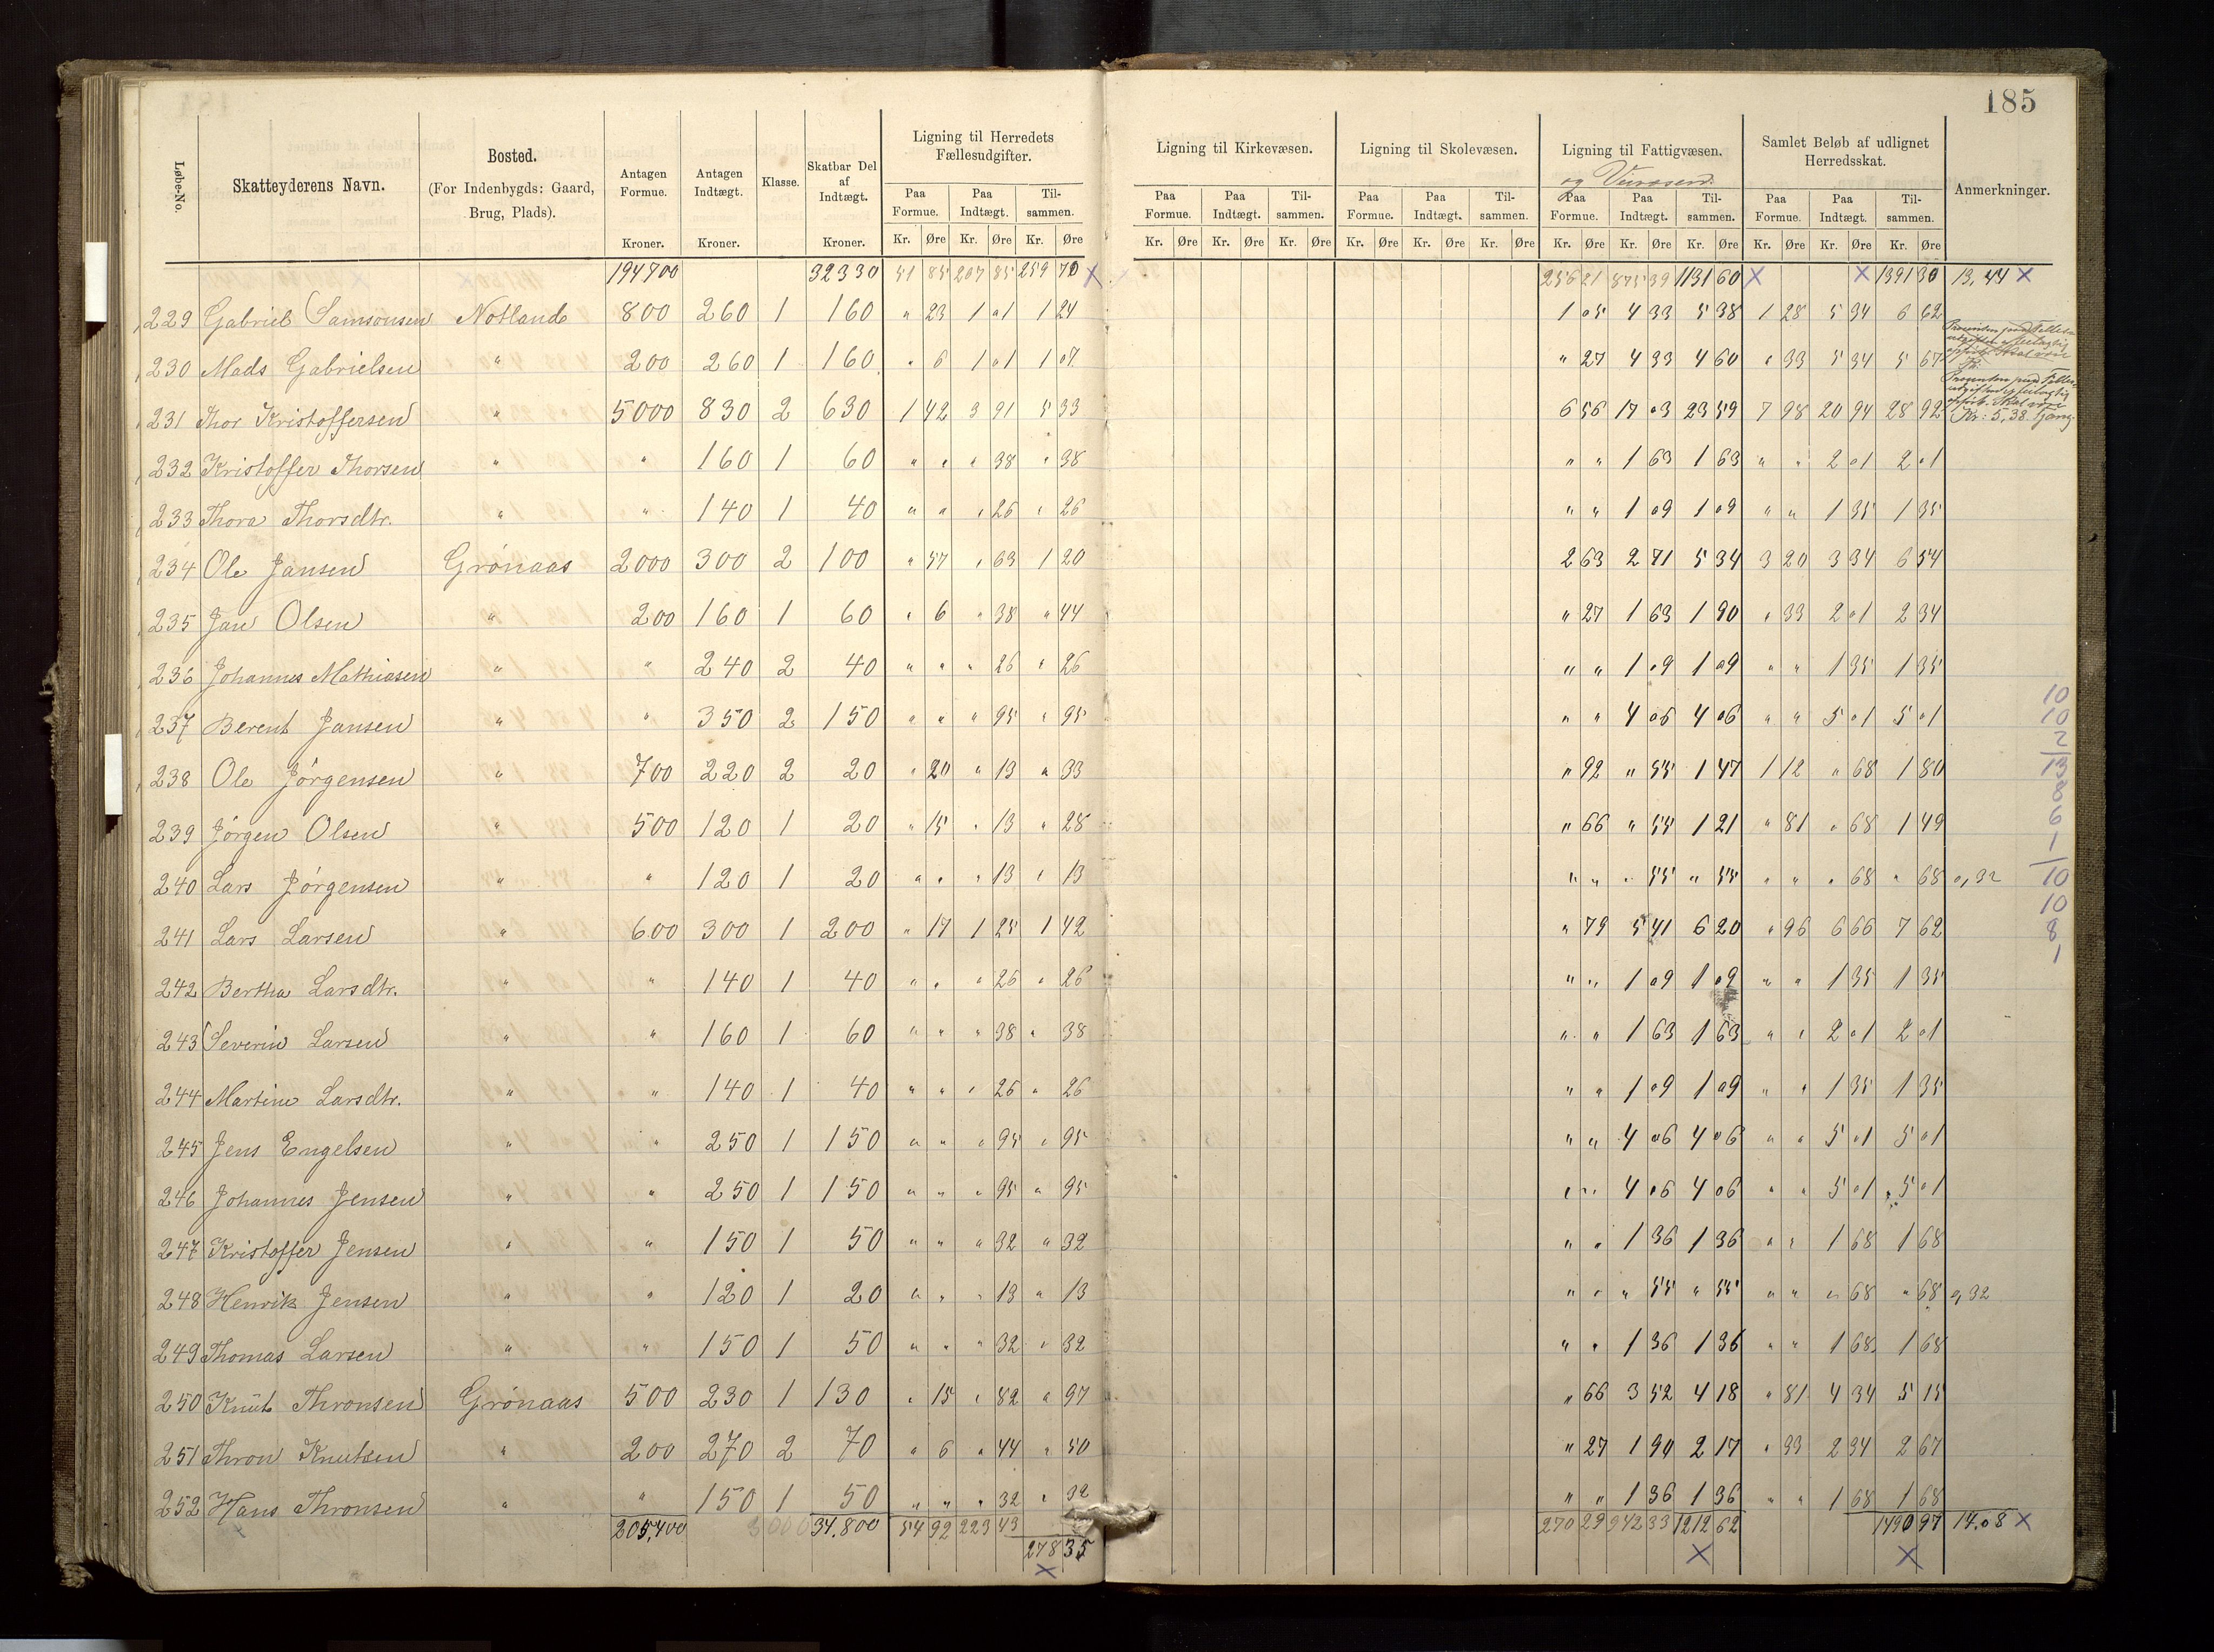 185
Løbe-No. | Skatteyderens Navn. | Bosted. (For Indenbygds: Gaard, Brug, Plads). | Antagen Formue. Kroner. | Antagen Indtægt. Kroner. | Klasse. | Skatbar Del af Indtægt. Kroner. | Ligning til Herredets Fællesudgifter. Paa Formue. Kr. Øre | Paa Indtægt. Kr. Øre | Til- sammen. Kr. Øre | Ligning til Kirkevæsen. Paa Formue. Kr. Øre | Paa Indtægt. Kr. Øre | Til- sammen. Kr. Øre | Ligning til Skolevæsen. Paa Formue. Kr. Øre | Paa Indtægt. Kr. Øre | Til- sammen. Kr. Øre | Ligning til Fattigvæsen. og Paa Formue. Kr. Øre | Paa Indtægt. Kr. Øre | Til- sammen. Kr. Øre | Samlet Beløb af udlignet Herredsskat. Paa Formue. Kr. Øre | Paa Indtægt. Kr. Øre | Til- sammen. Kr. Øre | Anmerkninger.
194700 32330 51 85 207 85 259 70 X 256 21 875 39 1131 60 X X 1391 30 13,44 X
229 Gabriel Samsonsen Notland 800 260 1 160 " 23 1 01 1 24 1 05 4 33 5 38 1 28 5 34 6 62
230 Mads Gabrielsen " 200 260 1 160 " 6 1 01 1 07 " 27 4 33 4 60 " 33 5 34 5 67
231 Thor Kristoffersen " 5000 830 2 630 1 42 3 91 5 33 6 56 17 03 23 59 7 98 20 94 28 92 Kr: 5,38
232 Kristoffer Thorsen " " 160 1 60 " " " 38 " 38 " " 1 63 1 63 " " 2 01 2 01
233 Thora Thorsdtr. " " 140 1 40 " " " 26 " 26 " " 1 09 1 09 " " 1 35 1 35
234 Ole Jansen Grönaas 2000 300 2 100 " 57 " 63 1 20 2 63 2 71 5 34 3 20 3 34 6 54
235 Jan Olsen " 200 160 1 60 " 6 " 38 " 44 " 27 1 63 1 90 " 33 2 01 2 34
236 Johannes Mathiasen " " 240 2 40 " " " 26 " 26 " " 1 09 1 09 " " 1 35 1 35
237 Berent Jansen " " 350 2 150 " " " 95 " 95 " " 4 06 4 06 " " 5 01 5 01
238 Ole Jörgensen " 700 220 2 20 " 20 " 13 " 33 " 92 " 55 1 47 1 12 " 68 1 80
239 Jörgen Olsen " 500 120 1 20 " 15 " 13 " 28 " 66 " 55 1 21 " 81 " 68 1 49
240 Lars Jörgensen " " 120 1 20 " " " 13 " 13 " " " 55 " 55 " " " 68 " 68 0,32
241 Lars Larsen " 600 300 1 200 " 17 1 25 1 42 " 79 5 41 6 20 " 96 6 66 7 62
242 Bertha Larsdtr. " " 140 1 40 " " " 26 " 26 " " 1 09 1 09 " " 1 35 1 35
243 Severin Larsen " " 160 1 60 " " " 38 " 38 " " 1 63 1 63 " " 2 01 2 01
244 Martine Larsdtr. " " 140 1 40 " " " 26 " 26 " " 1 09 1 09 " " 1 35 1 35
245 Jens Engelsen " " 250 1 150 " " " 95 " 95 " " 4 06 4 06 " " 5 01 5 01
246 Johannes Jensen " " 250 1 150 " " " 95 " 95 " " 4 06 4 06 " " 5 01 5 01
247 Kristoffer Jensen " " 150 1 50 " " " 32 " 32 " " 1 36 1 36 " " 1 68 1 68
248 Henrik Jensen " " 120 1 20 " " " 13 " 13 " " " 55 " 55 " " " 68 " 68 0,32
249 Thomas Larsen " " 150 1 50 " " " 32 " 32 " " 1 36 1 36 " " 1 68 1 68
250 Knüt Thronsen Grönaas 500 230 1 130 " 15 " 82 " 97 " 66 3 52 4 18 " 81 4 34 5 15
251 Thron Knutsen " 200 270 2 70 " 6 " 44 " 50 " 27 1 90 2 17 " 33 2 34 2 67
252 Hans Thronsen " " 150 1 50 " " " 32 " 32 " " 1 36 1 36 " " 1 68 1 68
205,400 34.800 54 92 223 43 270 29 942 33 1212 62 1490 97 14.08 X
278 35
X X X
10
10
2
13
8
6
1
10
10
8
1